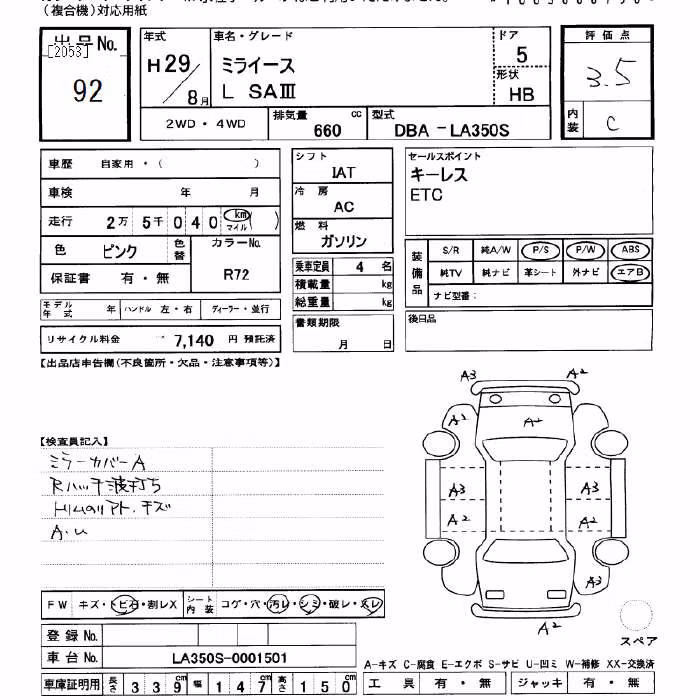 (複合機)対応用紙
出品No.
[2053]
92
年式
H29/8月
車名・グレード
ミライース
L SAⅢ
ドア
5
形状
HB
評価点
3.5
内装
C
2WD・4WD
排気量
660 cc
型式
DBA-LA350S
車歴 自家用・( )
車検 年 月
走行 2万 5千 0 4 0 km マイル ( )
色 ピンク
色替
カラーNo.
R72
保証書 有・無
モデル年式 年
ハンドル 左・右
ディーラー・並行
リサイクル料金 7,140 円 預託済
シフト
IAT
冷房
AC
燃料
ガソリン
乗車定員 4 名
積載量 kg
総重量 kg
書類期限
月 日
セールスポイント
キーレス
ETC
装備品
S/R 純A/W P/S P/W ABS
純TV 純ナビ 革シート 外ナビ エアB
ナビ型番:
後日品
【出品店申告欄(不良箇所・欠品・注意事項等)】
【検査員記入】
ミラーカバーA
Rハッチ波打ち
トリムのリアト、キズ
A.U
A3 A2
A2 A2
A3 A3
A2 A2
A3
A2
スペア
FW キズ・トビ石・割レX
シート内装 コゲ・穴・汚レ・シミ・破レ・スレ
登録No.
車台No. LA350S-0001501
車庫証明用 長さ 339 幅 147 高さ 150
A-キズ C-腐食 E-エクボ S-サビ U-凹ミ W-補修 XX-交換済
工具 有・無 ジャッキ 有・無